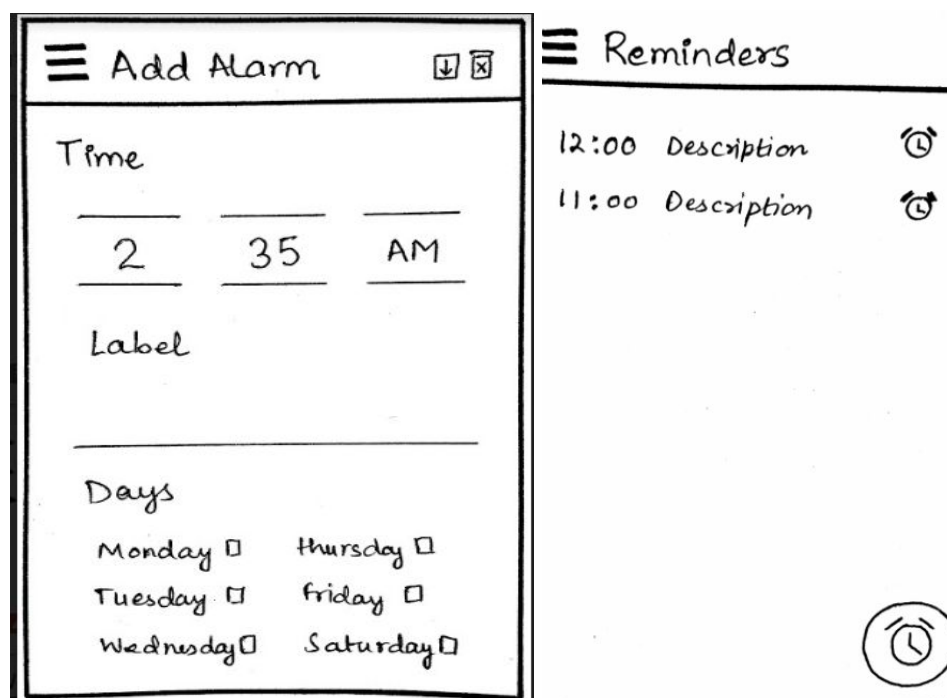 Add Alarm
Time
2 35 AM
Label
Days
Monday Thursday
Tuesday Friday
Wednesday Saturday
Reminders
12:00 Description
11:00 Description